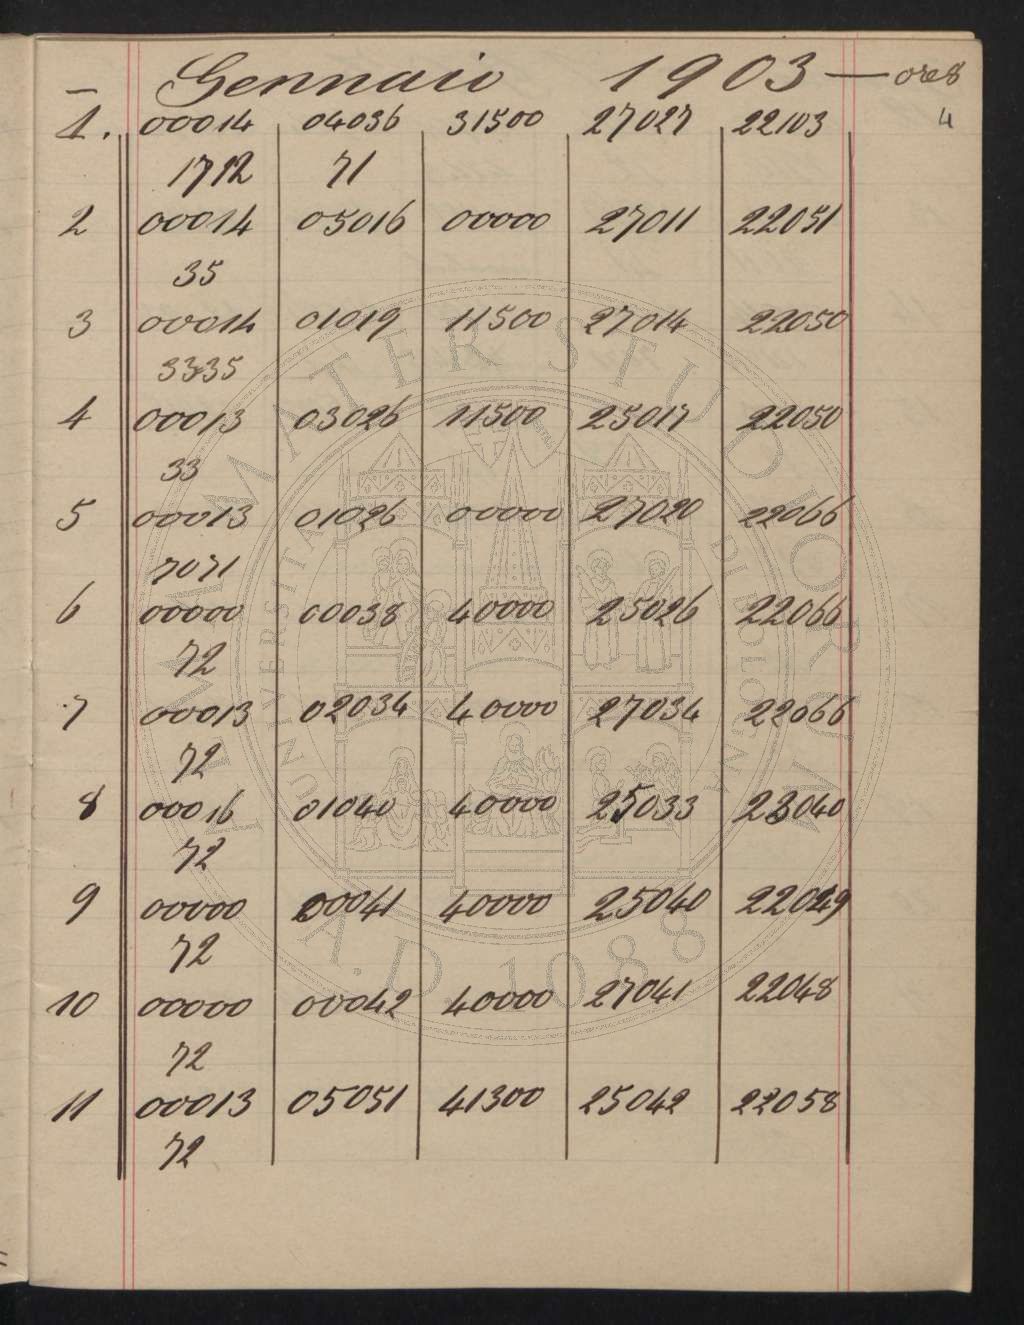 Gennaio 1903 — ore 8
4
1. 00014 04036 31500 27027 22103
1712 71
2 00014 05016 00000 27011 22051
35
3 00014 01019 11500 27014 22050
3335
4 00013 03026 11500 25017 22050
33
5 00013 01026 00000 27020 22066
7071
6 00000 00038 40000 25026 22066
72
7 00013 02034 40000 27034 22066
72
8 00016 01040 40000 25033 23040
72
9 00000 00041 40000 25040 22049
72
10 00000 00042 40000 27041 22048
72
11 00013 05051 41300 25042 22058
72
ALMA MATER STUDIORUM
UNIVERSITÀ DI BOLOGNA
A.D. 1088